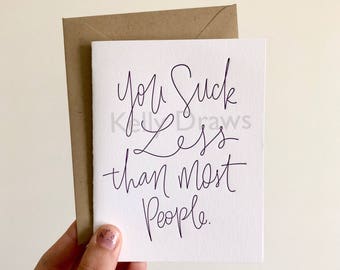 you Suck
Kelly Draws
Less
than most
People.